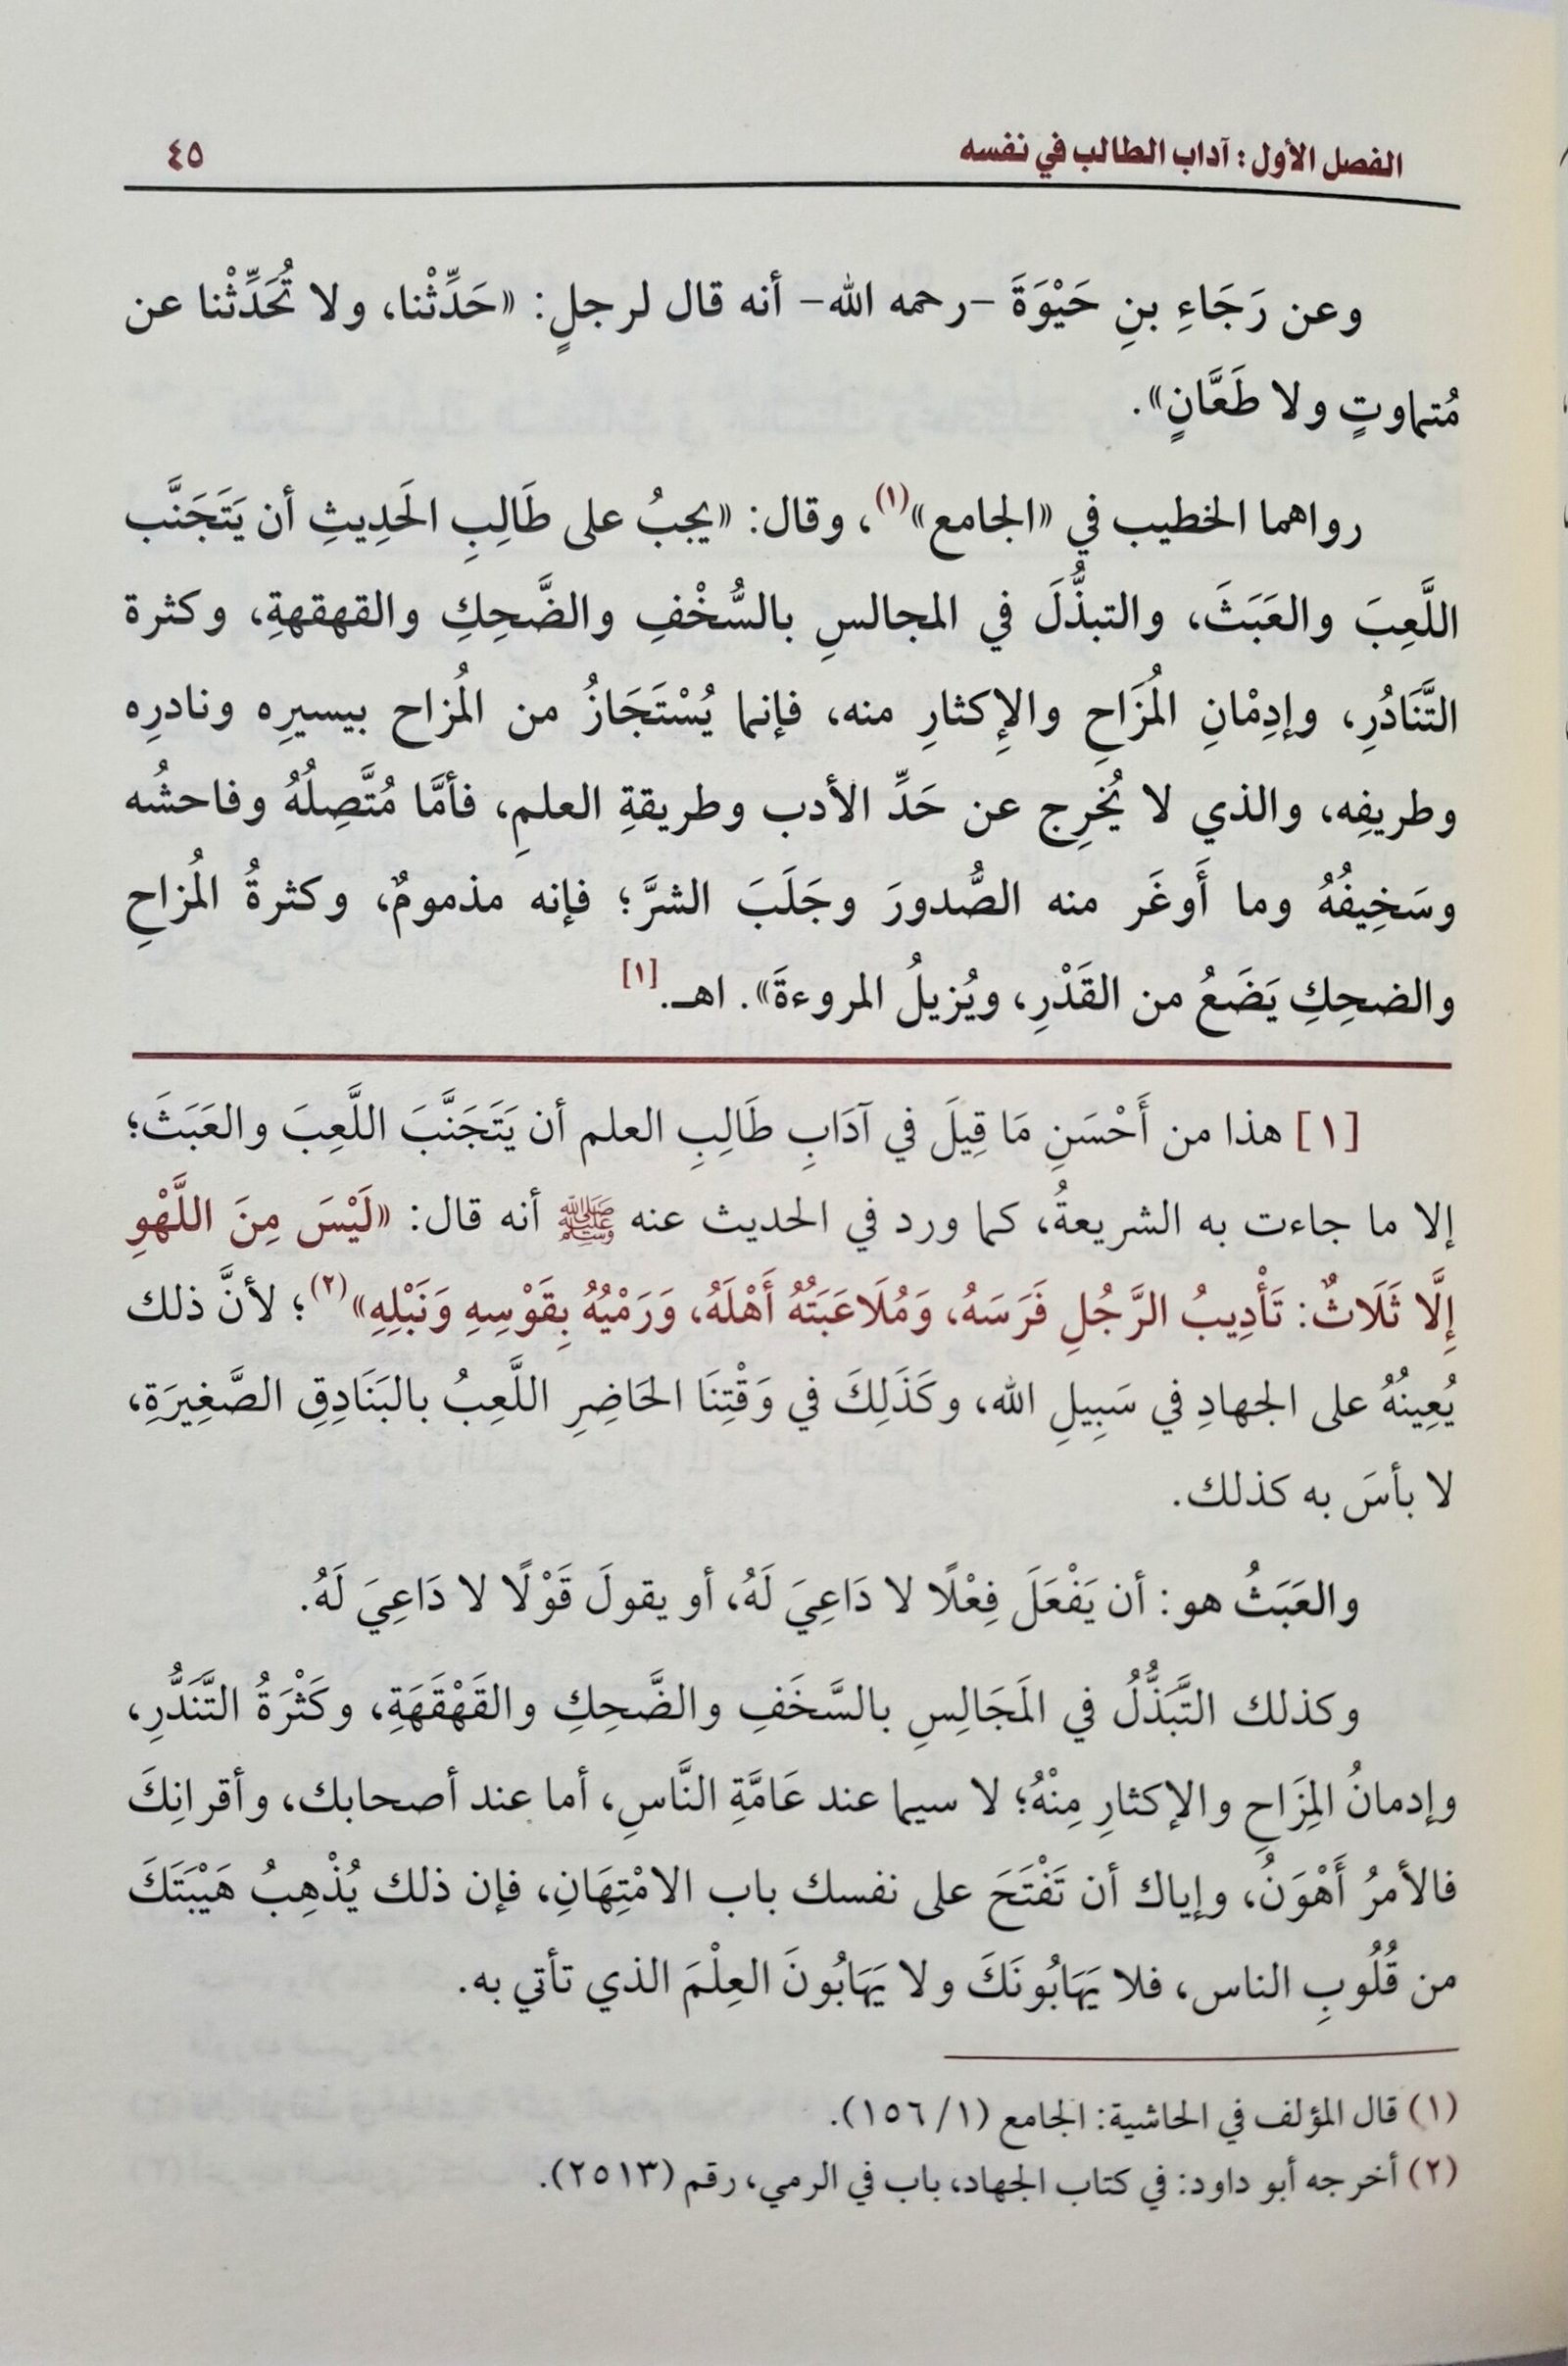 الفصل الأول: آداب الطالب في نفسه ٤٥
وعن رَجَاءِ بنِ حَيْوَةَ –رحمه الله– أنه قال لرجلٍ: «حَدِّثْنا، ولا تُحَدِّثْنا عن
مُتماوتٍ ولا طَعَّانٍ».
رواهما الخطيب في «الجامع»(١)، وقال: «يجبُ على طَالِبِ الحَدِيثِ أن يَتَجَنَّب
اللَّعِبَ والعَبَثَ، والتبذُّلَ في المجالسِ بالسُّخْفِ والضَّحِكِ والقهقهةِ، وكثرة
التَّنَادُرِ، وإدِمْانِ المُزَاحِ والإِكثارِ منه، فإنما يُسْتَجَازُ من المُزاح بيسيرِه ونادرِه
وطريفِه، والذي لا يُخرِج عن حَدِّ الأدب وطريقةِ العلمِ، فأمَّا مُتَّصِلُهُ وفاحشُه
وسَخِيفُهُ وما أَوغَر منه الصُّدورَ وجَلَبَ الشرَّ؛ فإنه مذمومٌ، وكثرةُ المُزاحِ
والضحِكِ يَضَعُ من القَدْرِ، ويُزيلُ المروءةَ». اهـ.[١]
[١] هذا من أَحْسَنِ مَا قِيلَ في آدَابِ طَالِبِ العلم أن يَتَجَنَّبَ اللَّعِبَ والعَبَثَ؛
إلا ما جاءت به الشريعةُ، كما ورد في الحديث عنه ﷺ أنه قال: «لَيْسَ مِنَ اللَّهْوِ
إِلَّا ثَلَاثٌ: تَأْدِيبُ الرَّجُلِ فَرَسَهُ، وَمُلَاعَبَتُهُ أَهْلَهُ، وَرَمْيُهُ بِقَوْسِهِ وَنَبْلِهِ»(٢)؛ لأنَّ ذلك
يُعِينُهُ على الجهادِ في سَبِيلِ الله، وكَذَلِكَ في وَقْتِنَا الحَاضِرِ اللَّعِبُ بالبَنَادِقِ الصَّغِيرَةِ،
لا بأسَ به كذلك.
والعَبَثُ هو: أن يَفْعَلَ فِعْلًا لا دَاعِيَ لَهُ، أو يقولَ قَوْلًا لا دَاعِيَ لَهُ.
وكذلك التَّبَذُّلُ في المَجَالِسِ بالسَّخَفِ والضَّحِكِ والقَهْقَهَةِ، وكَثْرَةُ التَّنَدُّرِ،
وإدمانُ المِزَاحِ والإكثارِ مِنْهُ؛ لا سيما عند عَامَّةِ النَّاسِ، أما عند أصحابك، وأقرانِكَ
فالأمرُ أَهْوَنُ، وإياك أن تَفْتَحَ على نفسك باب الامْتِهَانِ، فإن ذلك يُذْهِبُ هَيْبَتَكَ
من قُلُوبِ الناس، فلا يَهَابُونَكَ ولا يَهَابُونَ العِلْمَ الذي تأتي به.
(١) قال المؤلف في الحاشية: الجامع (١/ ١٥٦).
(٢) أخرجه أبو داود: في كتاب الجهاد، باب في الرمي، رقم (٢٥١٣).